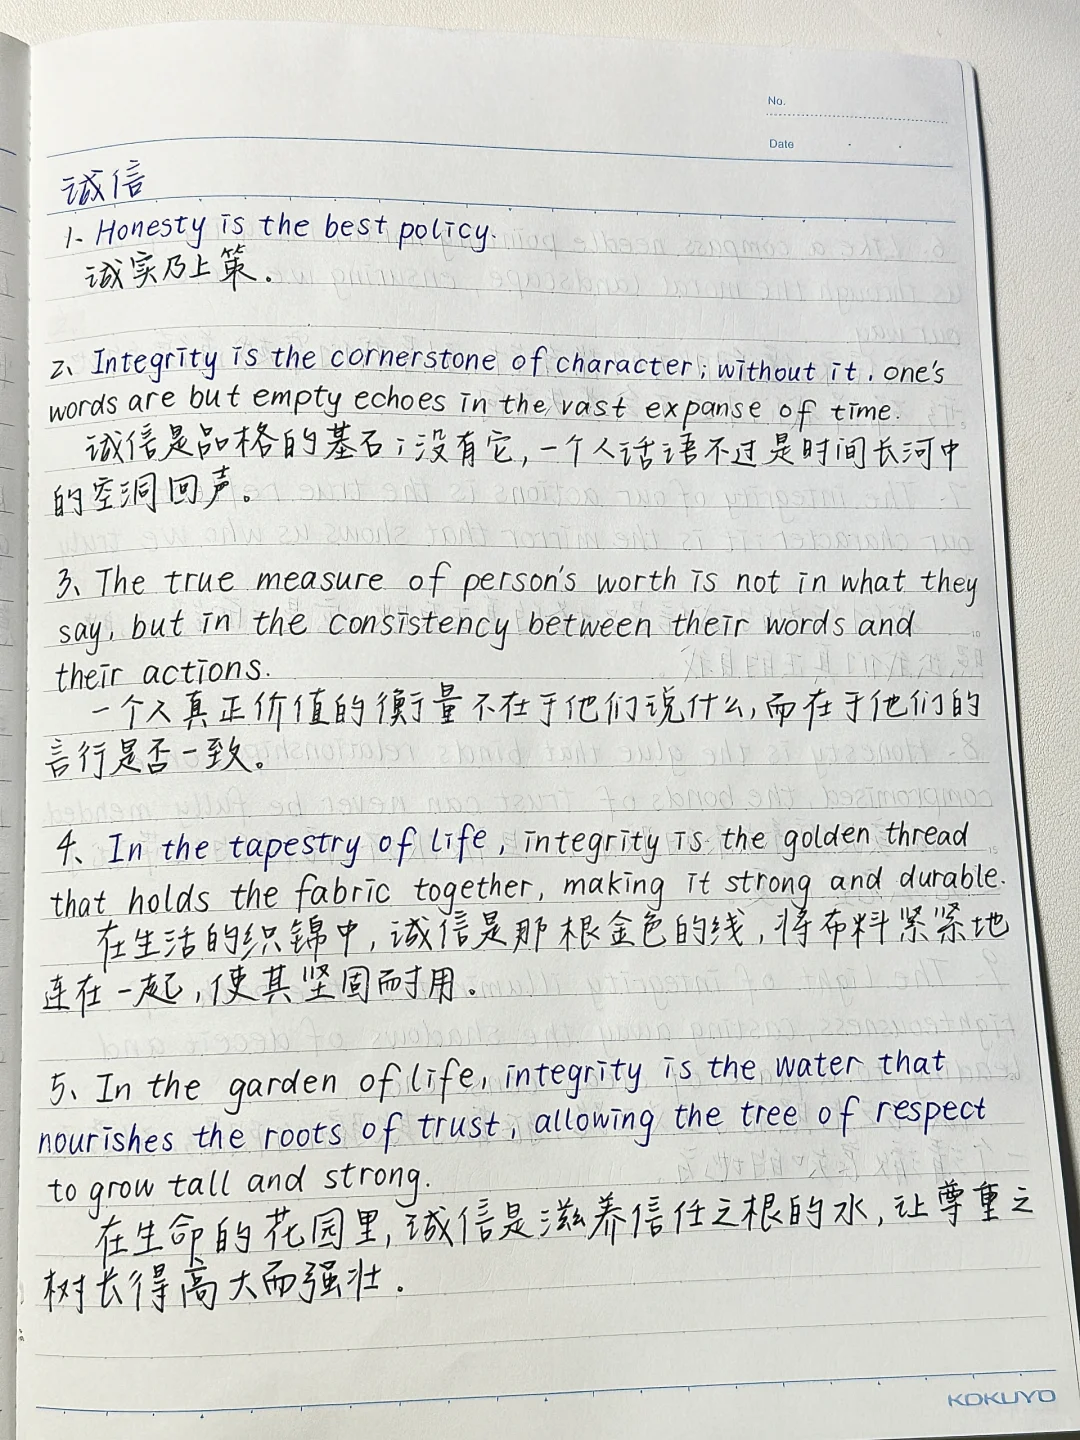 No.
Date
诚信
1. Honesty is the best policy.
诚实乃上策.
2、Integrity is the cornerstone of character; without it, one's
words are but empty echoes in the vast expanse of time.
诚信是品格的基石;没有它,一个人话语不过是时间长河中
的空洞回声。
3、The true measure of person's worth is not in what they
say, but in the consistency between their words and
their actions.
一个人真正价值的衡量不在于他们说什么,而在于他们的
言行是否一致。
4、In the tapestry of life, integrity is the golden thread
that holds the fabric together, making it strong and durable.
在生活的织锦中,诚信是那根金色的线,将布料紧紧地
连在一起,使其坚固而耐用.
5、In the garden of life, integrity is the water that
nourishes the roots of trust, allowing the tree of respect
to grow tall and strong.
在生命的花园里,诚信是滋养信任之根的水,让尊重之
树长得高大而强壮.
KOKUYO